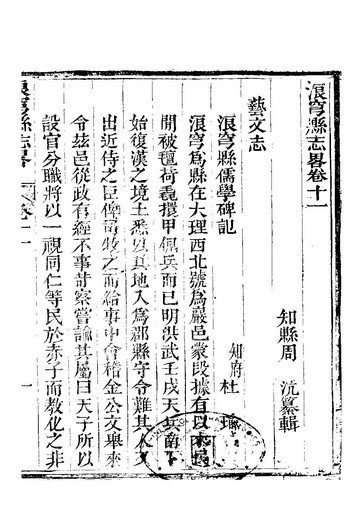 浪穹縣志畧卷十一
知縣周沆纂輯
藝文志
浪穹縣儒學碑記
知府杜
浪穹爲縣在大理西北號爲嚴邑蒙段據有以來
開被氊荷毳擐甲佩兵而已明洪武壬戌天兵南下
始復漢之境土悉以其地入爲郡縣守令難其人
出近侍之臣俾司牧之而給事中會稽金公文舉來
令茲邑從政有經不事苛察嘗諭其屬曰天子所以
設官分職將以一視同仁等民於赤子而教化之非
浪穹縣志畧 卷十一 一